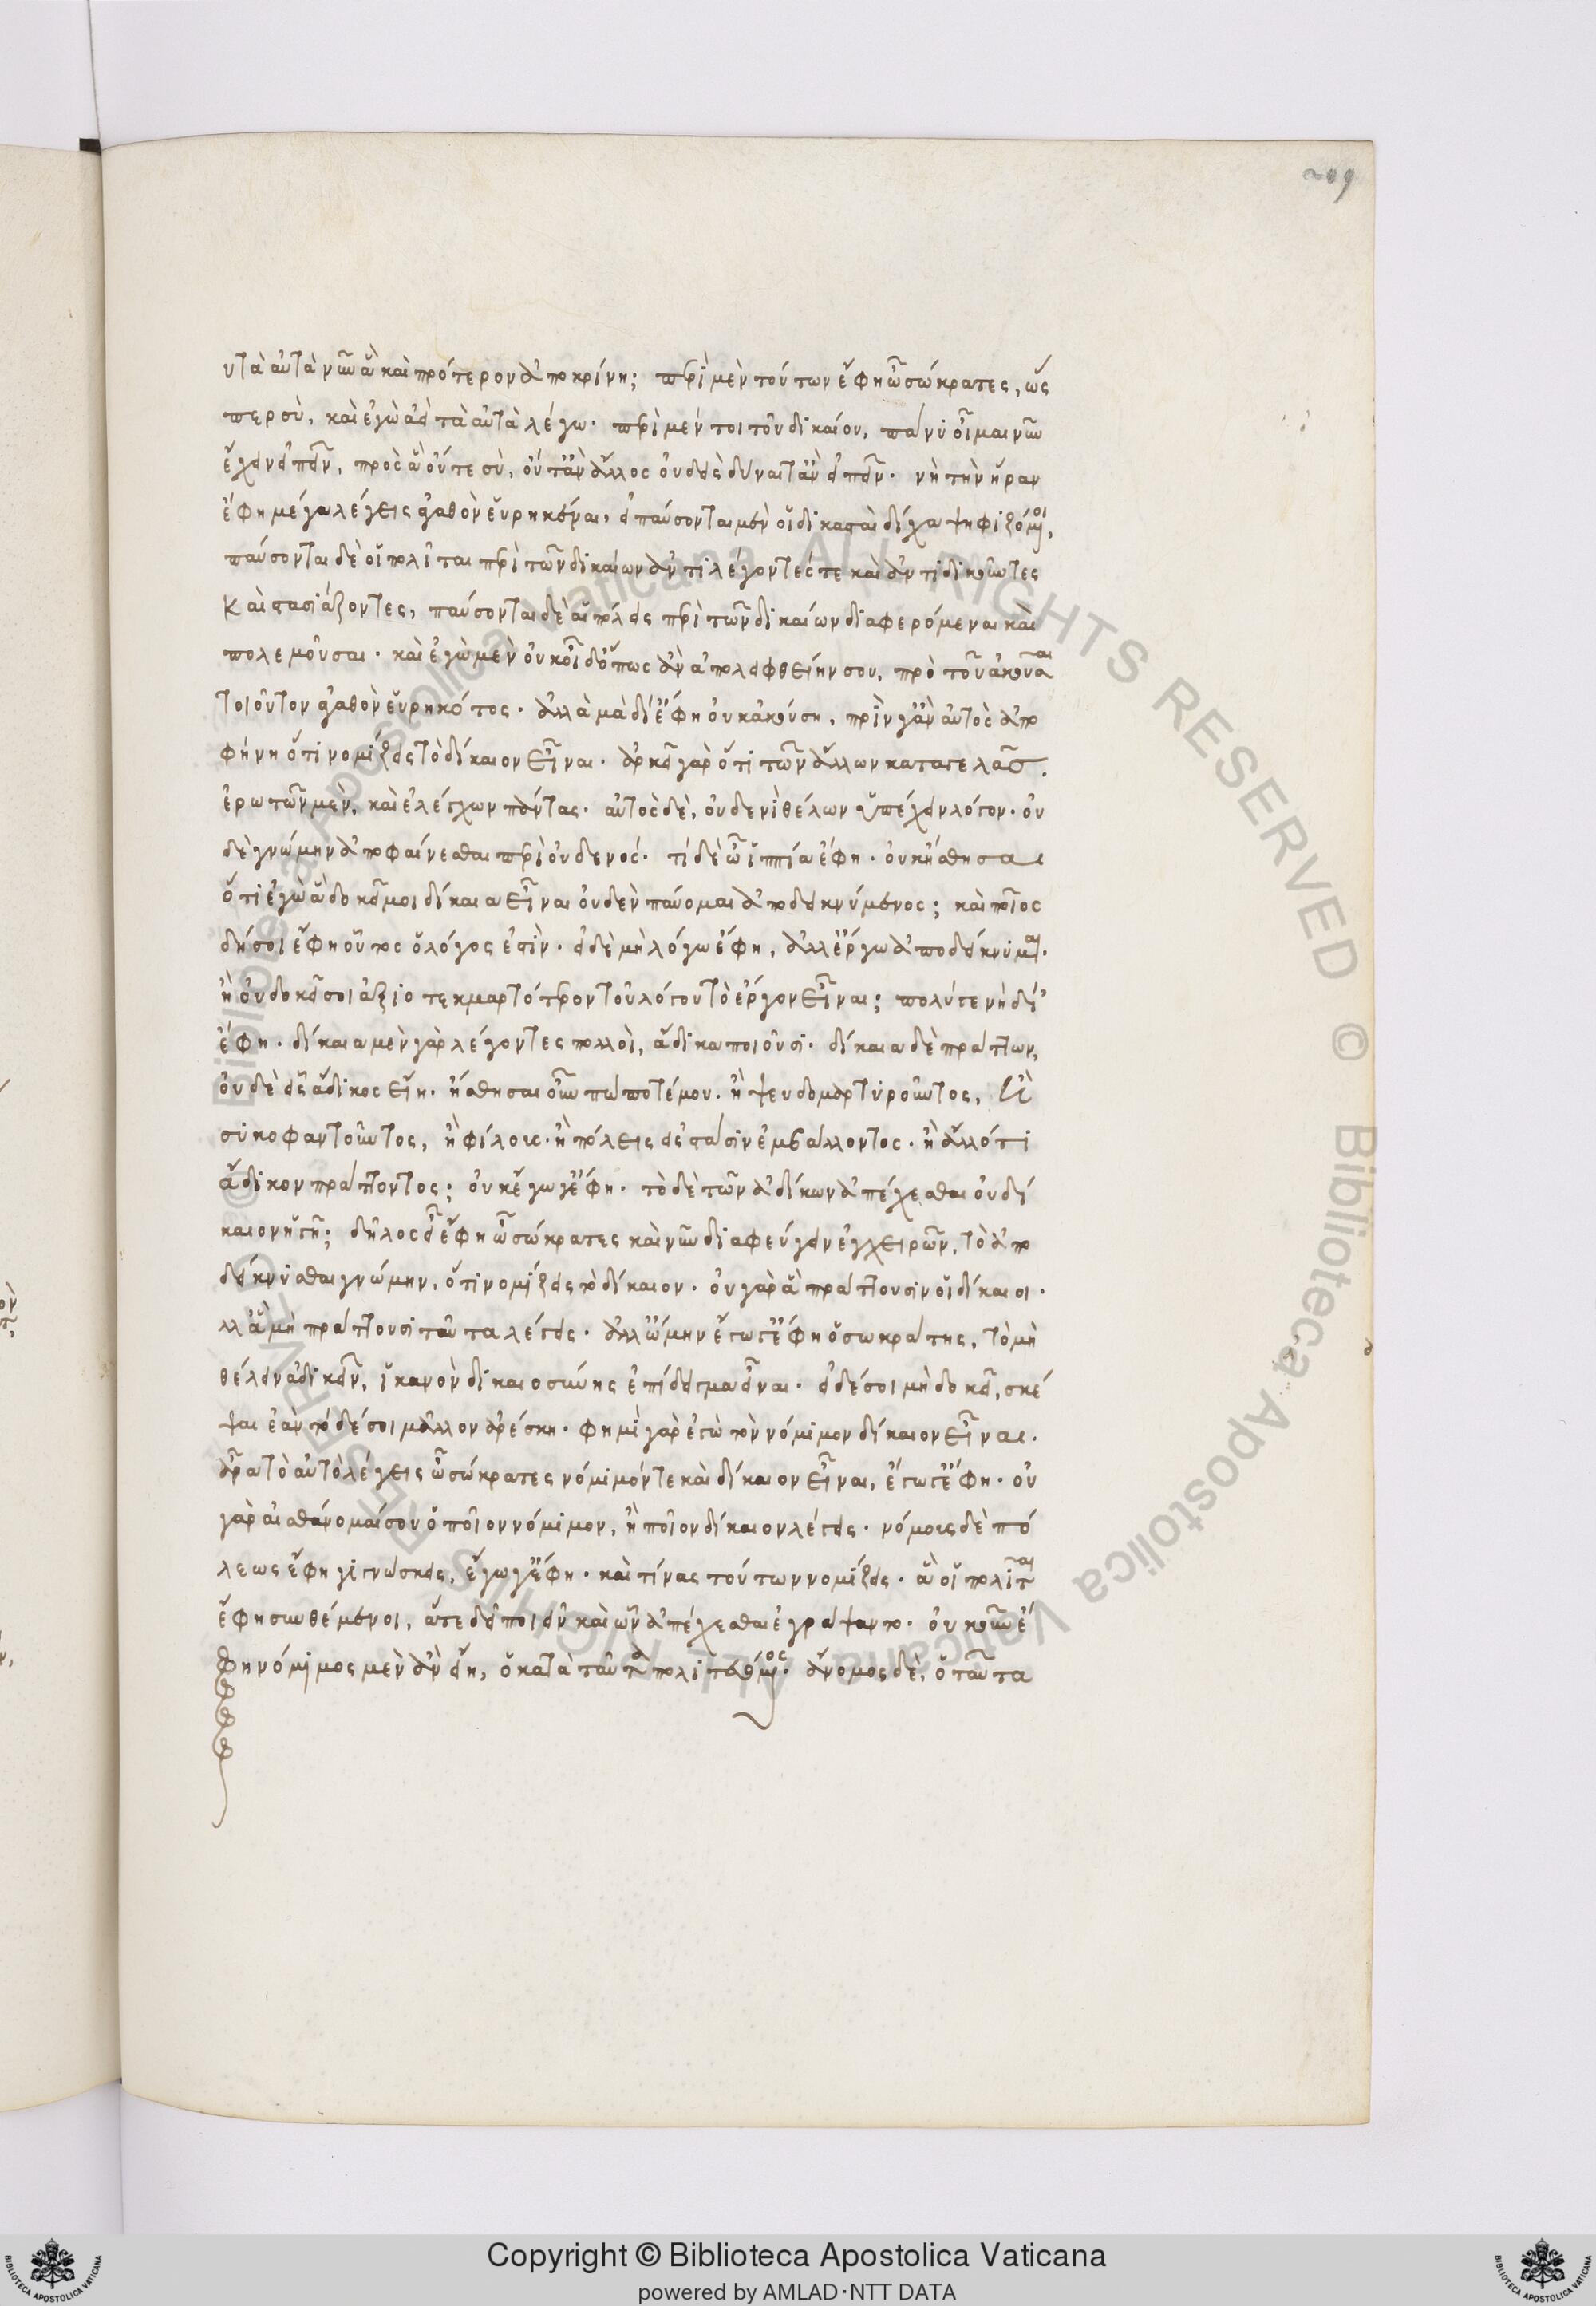 209
υτὰ αὐτὰ νῦν ἃ καὶ πρότερον ἀποκρίνη; περὶ μὲν τούτων ἔφη ὦ σώκρατες, ὥς
περ σὺ, καὶ ἐγὼ ἀεὶ τὰ αὐτὰ λέγω. περὶ μέν τοι τοῦ δικαίου, πάνυ οἶμαι νῦν
ἔχειν εἰπεῖν, πρὸς ἃ οὔτε σὺ, οὔτ' ἂν ἄλλος οὐδεὶς δύναιτ' ἂν εἰπεῖν. νὴ τὴν ἥραν
ἔφη μέγα λέγεις ἀγαθὸν εὑρηκέναι, εἰ παύσονται μὲν οἱ δικασταὶ δίχα ψηφιζόμενοι,
παύσονται δὲ οἱ πολῖται περὶ τῶν δικαίων ἀντιλέγοντές τε καὶ ἀντιδικοῦντες
καὶ στασιάζοντες, παύσονται δὲ αἱ πόλεις περὶ τῶν δικαίων διαφερόμεναι καὶ
πολεμοῦσαι. καὶ ἐγὼ μὲν οὐκ οἶδ' ὅπως ἂν ἀπολειφθείην σου, πρὸ τοῦ ἀκοῦσαι
τοιοῦτον ἀγαθὸν εὑρηκότος. ἀλλὰ μὰ δί' ἔφη οὐκ ἀκούση, πρίν γ' ἂν αὐτὸς ἀπο
φήνη ὅτι νομίζεις τὸ δίκαιον εἶναι. ἀρκεῖ γὰρ ὅτι τῶν ἄλλων καταγελᾶς.
ἐρωτῶν μὲν, καὶ ἐλέγχων πάντας. αὐτὸς δὲ, οὐδενὶ θέλων ὑπέχειν λόγον. οὐ
δὲ γνώμην ἀποφαίνεσθαι περὶ οὐδενός. τί δὲ ὦ ἱππία ἔφη. οὐκ ἤσθησαι
ὅτι ἐγὼ ἃ δοκεῖ μοι δίκαια εἶναι οὐδὲν παύομαι ἀποδεικνύμενος; καὶ ποῖος
δή σοι ἔφη οὗτος ὁ λόγος ἐστὶν. εἰ δὲ μὴ λόγω ἔφη, ἀλλ' ἔργω ἀποδείκνυμαι.
ἢ οὐ δοκεῖ σοι ἀξιοτεκμαρτότερον τοῦ λόγου τὸ ἔργον εἶναι; πολύ γε νὴ δί'
ἔφη. δίκαια μὲν γὰρ λέγοντες πολλοὶ, ἄδικα ποιοῦσι. δίκαια δὲ πράττων,
οὐδὲ εἷς ἄδικος εἴη. ἤσθησαι οὖν πώποτέ μου. ἢ ψευδομαρτυροῦντος, ἢ
συκοφαντοῦντος, ἢ φίλους. ἢ πόλεις εἰς στάσιν ἐμβάλλοντος. ἢ ἄλλό τι
ἄδικον πράττοντος; οὐκ ἔγωγ' ἔφη. τὸ δὲ τῶν ἀδίκων ἀπέχεσθαι οὐ δί
καιον ἡγῆ; δῆλος εἶ ἔφη ὦ σώκρατες καὶ νῦν διαφεύγειν ἐγχειρῶν, τὸ ἀπο
δείκνυσθαι γνώμην, ὅτι νομίζεις τὸ δίκαιον. οὐ γὰρ ἃ πράττουσιν οἱ δίκαιοι.
ἀλλ' ἃ μὴ πράττουσι ταῦτα λέγεις. ἀλλ' ὤμην ἔγωγ' ἔφη ὁ σωκράτης, τὸ μὴ
θέλειν ἀδικεῖν, ἱκανὸν δικαιοσύνης ἐπίδειγμα εἶναι. εἰ δέ σοι μὴ δοκεῖ, σκέ
ψαι ἐὰν τόδε σοι μᾶλλον ἀρέσκη. φημὶ γὰρ ἐγὼ τὸν νόμιμον δίκαιον εἶναι.
ἆρα τὸ αὐτὸ λέγεις ὦ σώκρατες νόμιμόν τε καὶ δίκαιον εἶναι, ἔγωγ' ἔφη. οὐ
γὰρ αἰσθάνομαί σου ὁποῖον νόμιμον, ἢ ποῖον δίκαιον λέγεις. νόμους δὲ πό
λεως ἔφη γιγνώσκεις, ἔγωγ' ἔφη. καὶ τίνας τούτων νομίζεις. ἃ οἱ πολῖται
ἔφη συνθέμενοι, ἅ τε δεῖ ποιεῖν καὶ ὧν ἀπέχεσθαι ἐγράψαντο. οὐκοῦν ἔ
φη νόμιμος μὲν ἂν εἴη, ὁ κατὰ ταῦτα πολιτευόμενος. ἄνομος δὲ, ὁ ταῦτα
Copyright © Biblioteca Apostolica Vaticana
powered by AMLAD·NTT DATA